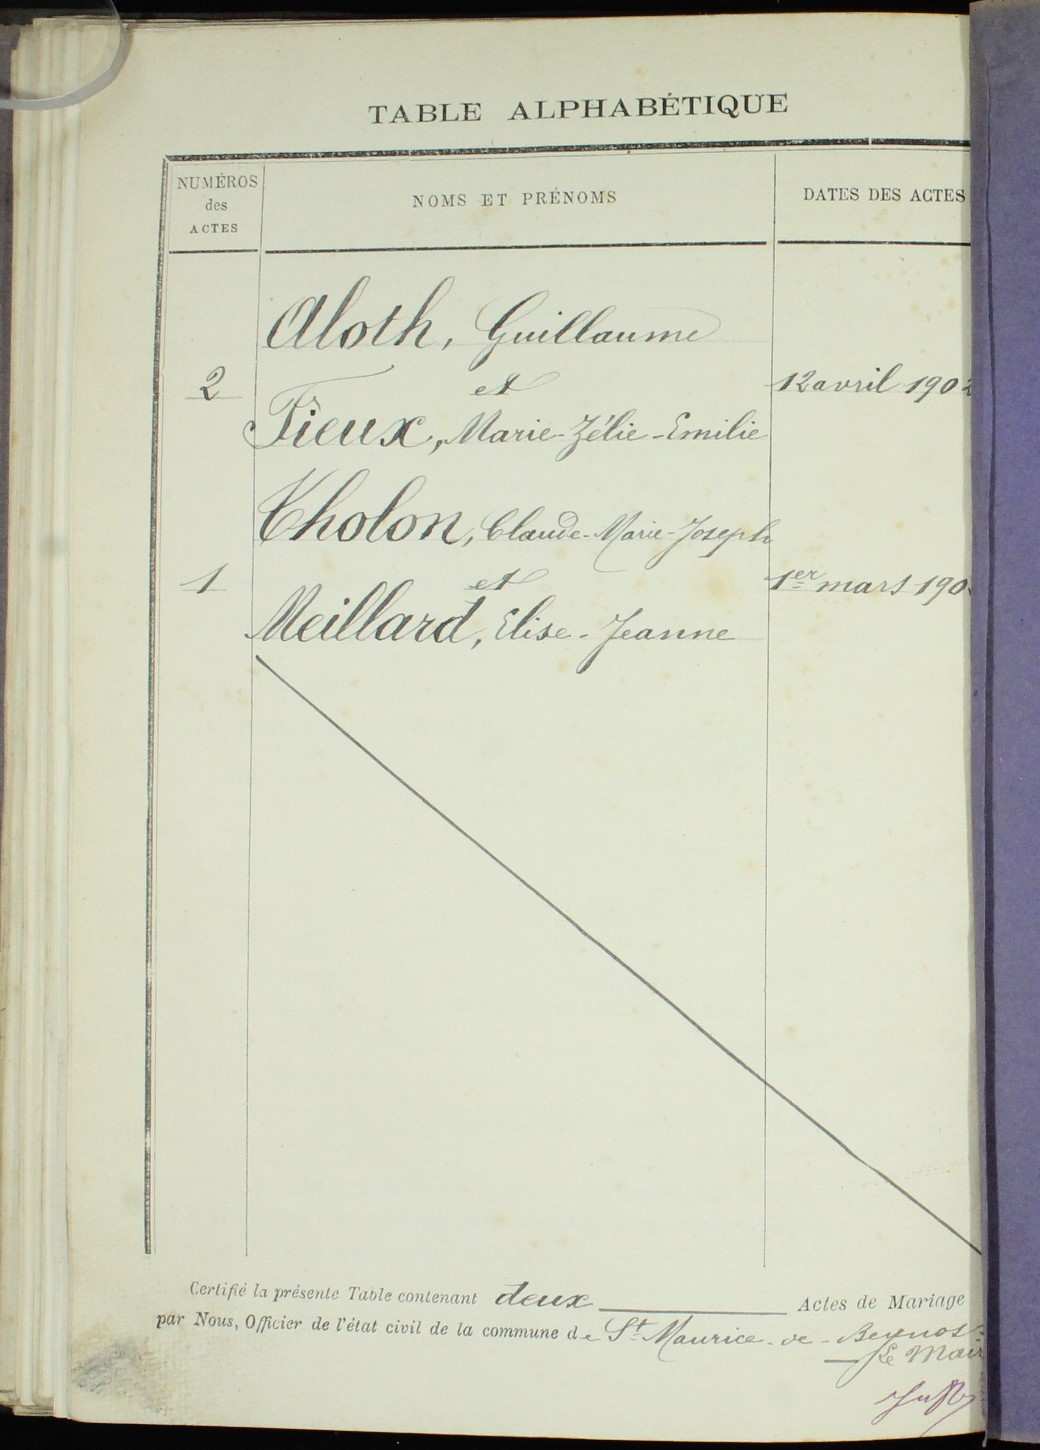 TABLE ALPHABÉTIQUE
NUMÉROS
des
ACTES
NOMS ET PRÉNOMS
DATES DES ACTES
Aloth, Guillaume
2
et
12 avril 1902
Fieux, Marie-Zélie-Emilie
Tholon, Claude-Marie-Joseph
1
et
1er mars 190
Meillard, Elise-Jeanne
Certifié la présente Table contenant deux Actes de Mariage
par Nous, Officier de l'état civil de la commune de St Maurice-de-Beynost
Le Mair